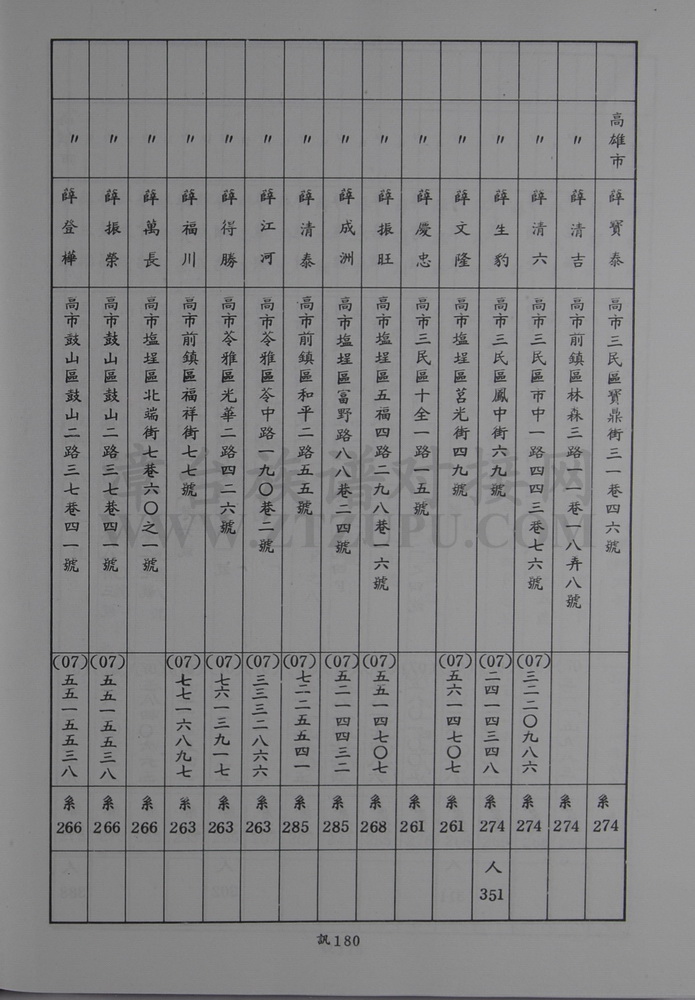 高雄市 薛寶泰 高市三民區寶鼎街三一巷四六號 系274
〃 薛清吉 高市前鎮區林森三路一一巷一八弄八號 系274
〃 薛清六 高市三民區市中一路四四三巷七六號 (07)三二二〇九八六 系274
〃 薛生豹 高市三民區鳳中街六九號 (07)二四一四三四八 系274 人351
〃 薛文隆 高市塩埕區莒光街四九號 (07)五六一四七〇七 系261
〃 薛慶忠 高市三民區十全一路一五號 系261
〃 薛振旺 高市塩埕區五福四路二九八巷一六號 (07)五五一四七〇七 系268
〃 薛成洲 高市塩埕區富野路八八巷二四號 (07)五二一四四三二 系285
〃 薛清泰 高市前鎮區和平二路五五號 (07)七二二五五四一 系285
〃 薛江河 高市苓雅區苓中路一九〇巷二號 (07)三三三二八六六 系263
〃 薛得勝 高市苓雅區光華二路四二六號 (07)七六一三九一七 系263
〃 薛福川 高市前鎮區福祥街七七號 (07)七七一六八九七 系263
〃 薛萬長 高市塩埕區北端街七巷六〇之一號 系266
〃 薛振榮 高市鼓山區鼓山二路三七巷四一號 (07)五五一五五三八 系266
〃 薛登樺 高市鼓山區鼓山二路三七巷四一號 (07)五五一五五三八 系266
訊180
WWW.ZTZUPU.COM